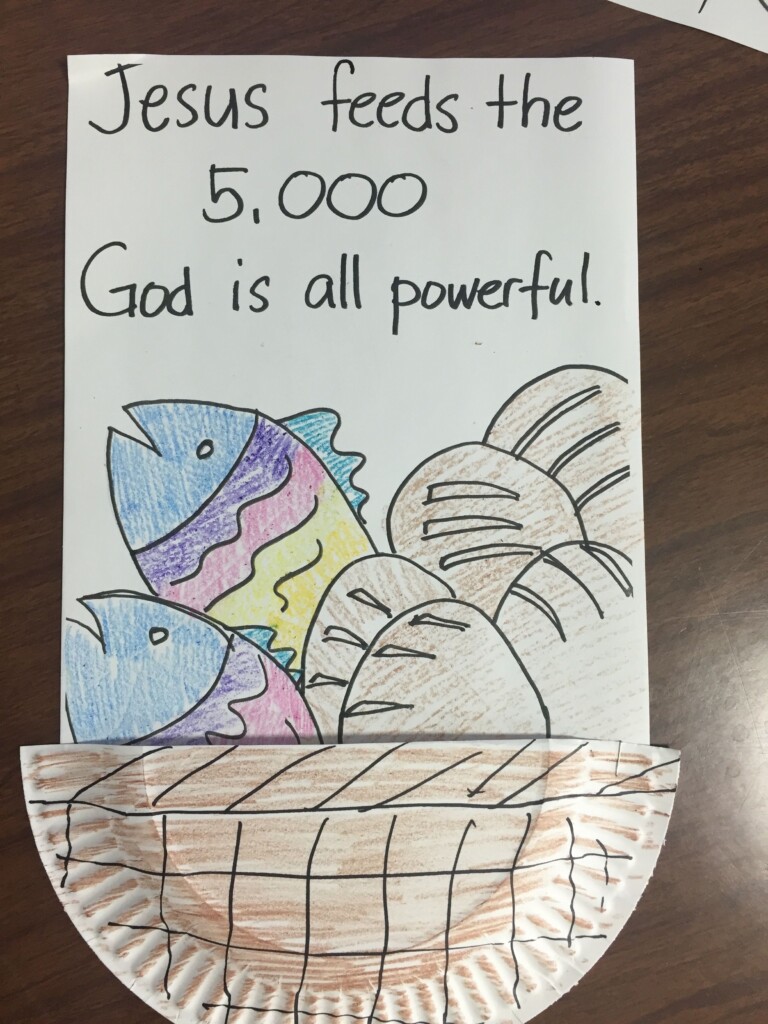 Jesus feeds the
5,000
God is all powerful.